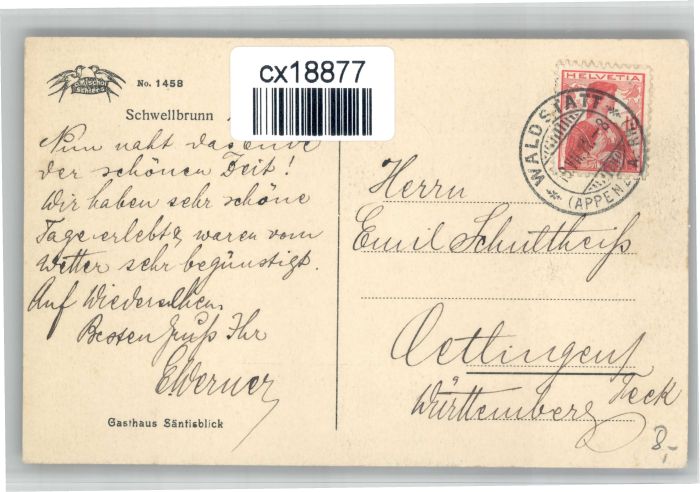 No. 1458
cx18877
Schwellbrunn
Nun naht das Ende
der schönen Zeit!
Wir haben sehr schöne
Tage erlebt & waren vom
Wetter sehr begünstigt.
Auf Wiedersehen
Besten Gruß Ihr
EWerner
Gasthaus Säntisblick
HELVETIA
WALDSTATT
(APPENZ.
Herrn
Emil Schultheiß
Oetlingen
Teck
Württemberg
8,-